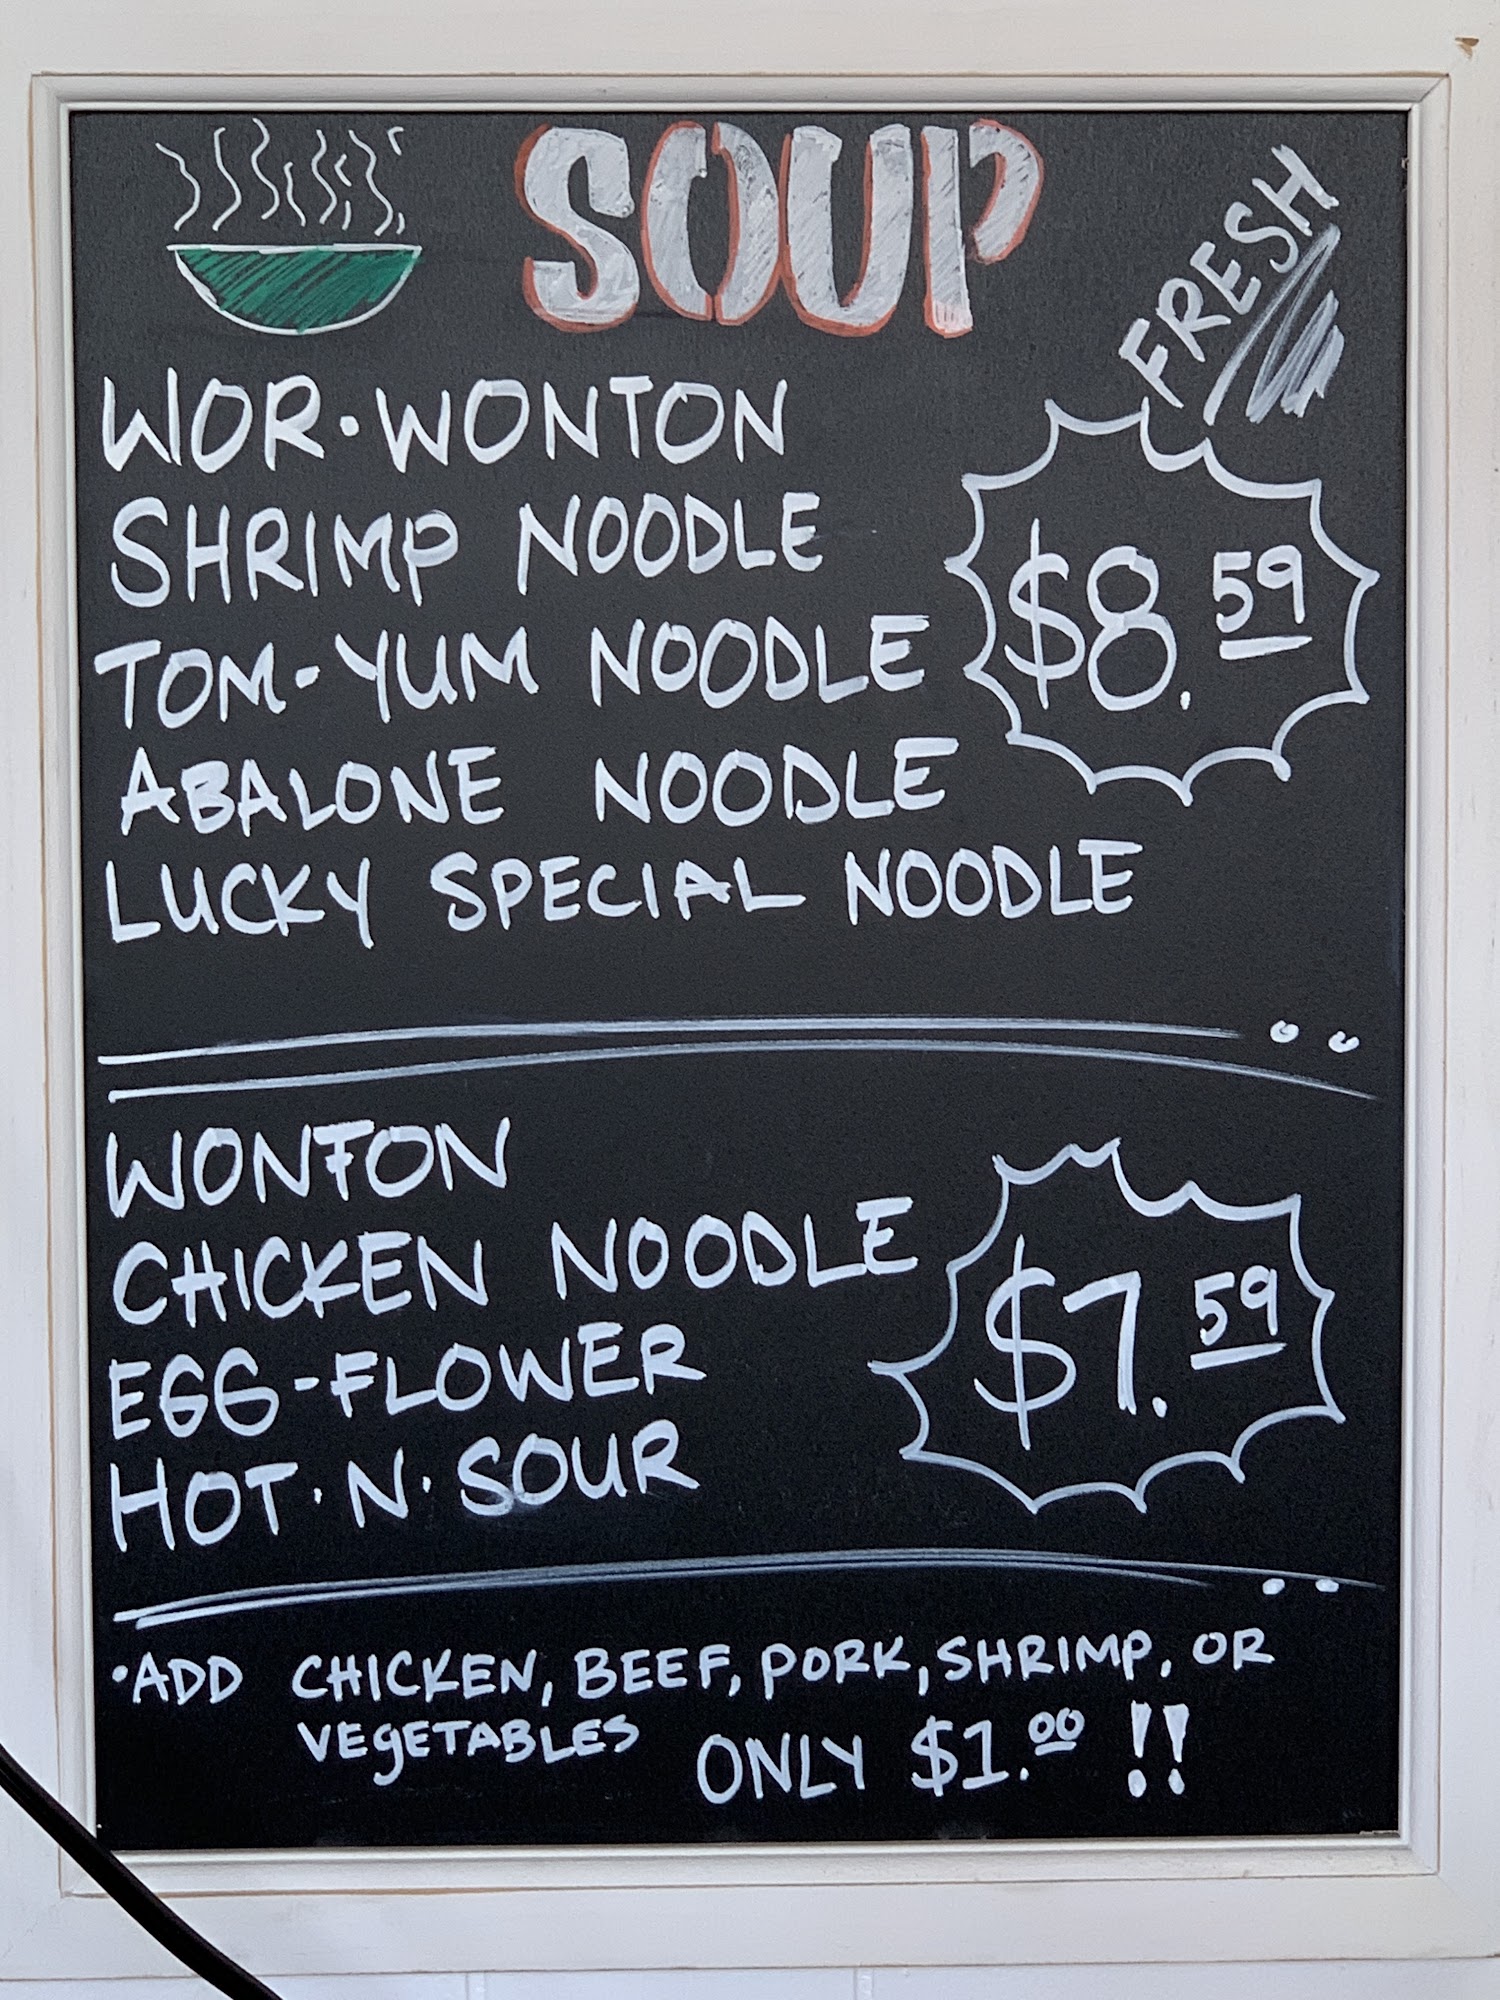 SOUP
FRESH
WOR·WONTON
SHRIMP NOODLE
$8.59
TOM-YUM NOODLE
ABALONE NOODLE
LUCKY SPECIAL NOODLE
WONTON
CHICKEN NOODLE
$7.59
EGG-FLOWER
HOT·N·SOUR
·ADD CHICKEN, BEEF, PORK, SHRIMP, OR
VEGETABLES ONLY $1.00 !!